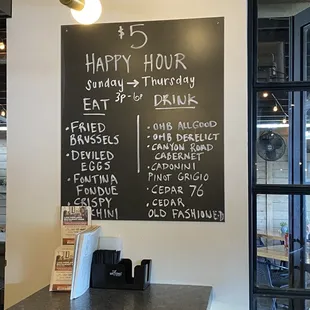 $5
HAPPY HOUR
Sunday → Thursday
EAT
DRINK
• FRIED
BRUSSELS
• DEVILED
EGGS
• FONTINA
FONDUE
• CRISPY
• OHB ALLGOOD
• OHB DERELICT
• CANYON ROAD
CABERNET
• CAPONINI
PINOT GRIGIO
• CEDAR 76
• CEDAR
OLD FASHIONED